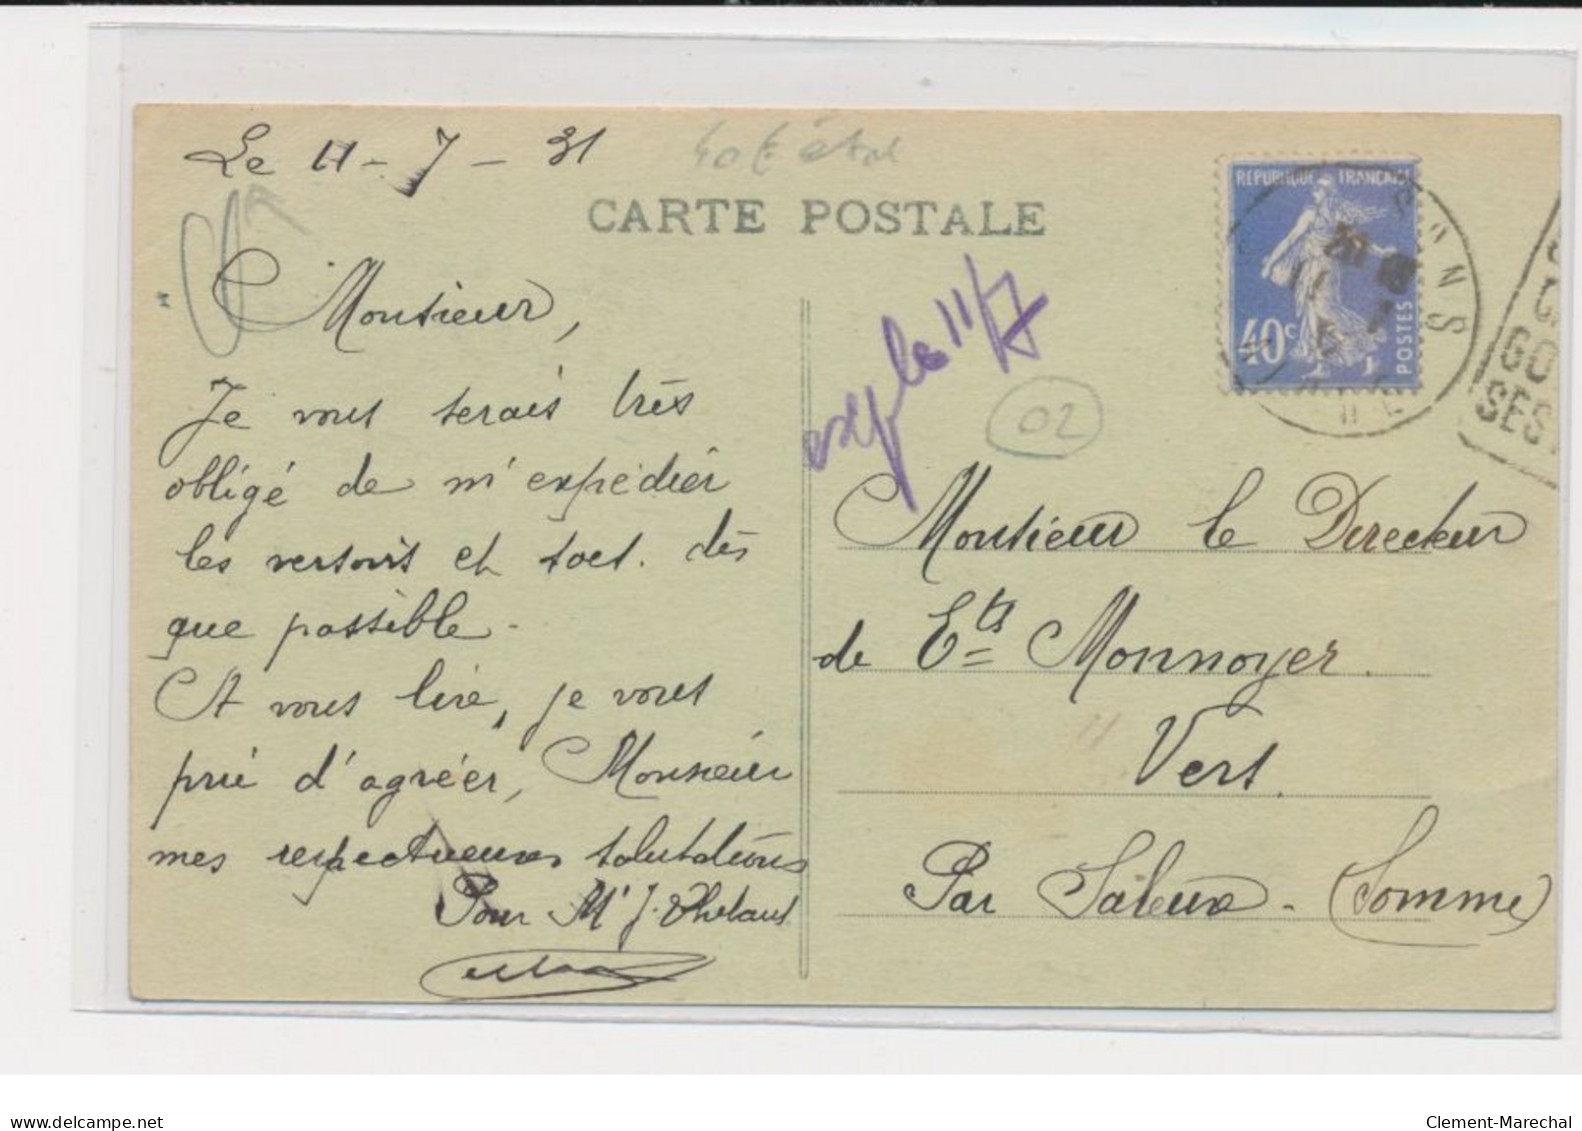 Le 11 - 7 - 31
CARTE POSTALE
Monsieur,
Je vous serais très
obligé de m'expédier
les versoirs et socs. dès
que possible -
A vous lire, je vous
prie d'agréer, Monsieur
mes respectueuses salutations
Pour Mr J.
REPUBLIQUE FRANÇAISE
40c
POSTES
exp le 11/7
02
GO
SES
Monsieur le Directeur
de Ets Monnoyer
Vers
Par Saleux - (Somme)
Clement-Marechal
www.delcampe.net